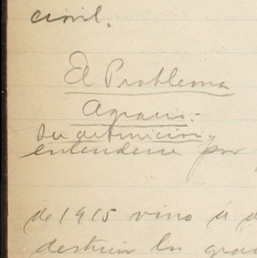 civil.
El Problema
Agrario.-
Su definicion y
entenderse por
de 1915 vino á d
destruir los gran